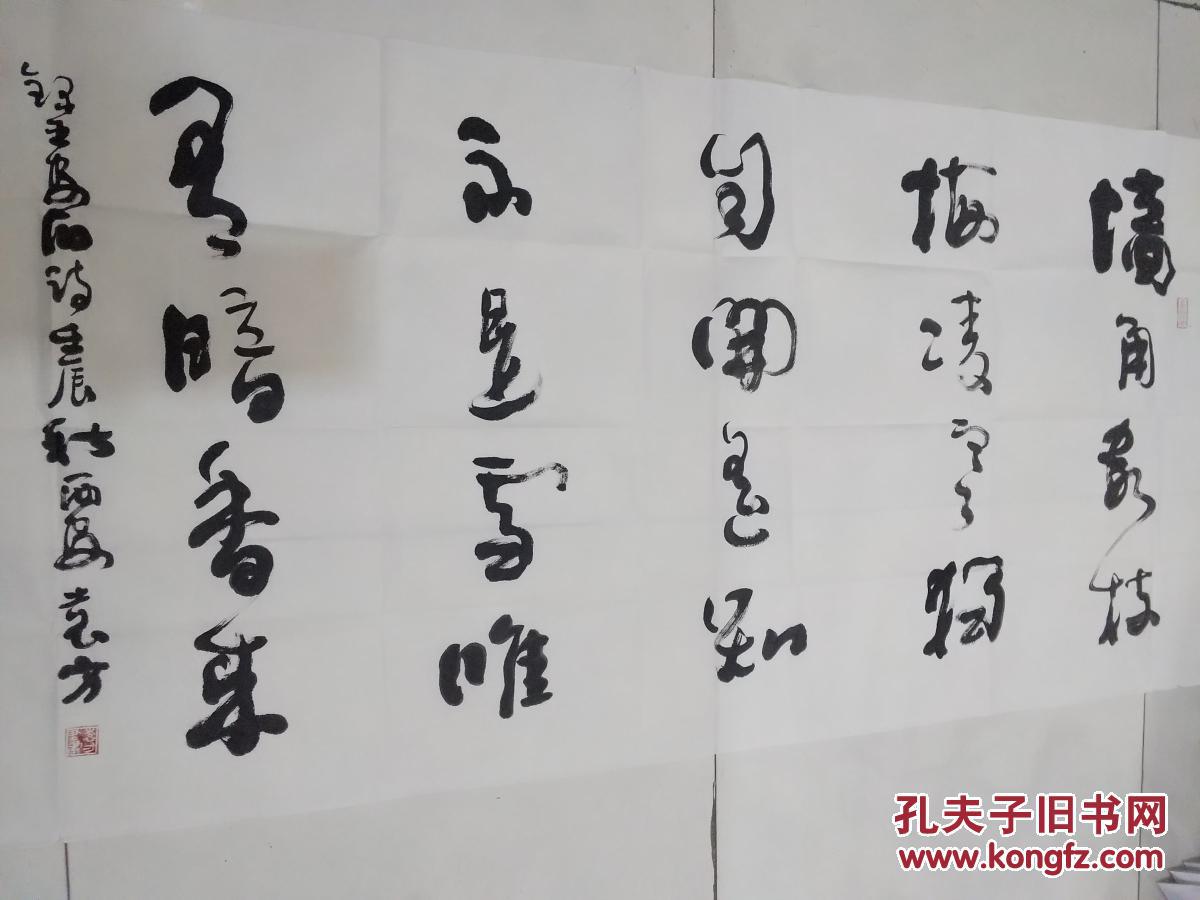 墻角數枝
梅凌寒獨
自開遥知
不是雪唯
有暗香來
錄王安石詩壬辰秋西安袁方
孔夫子旧书网
www.kongfz.com